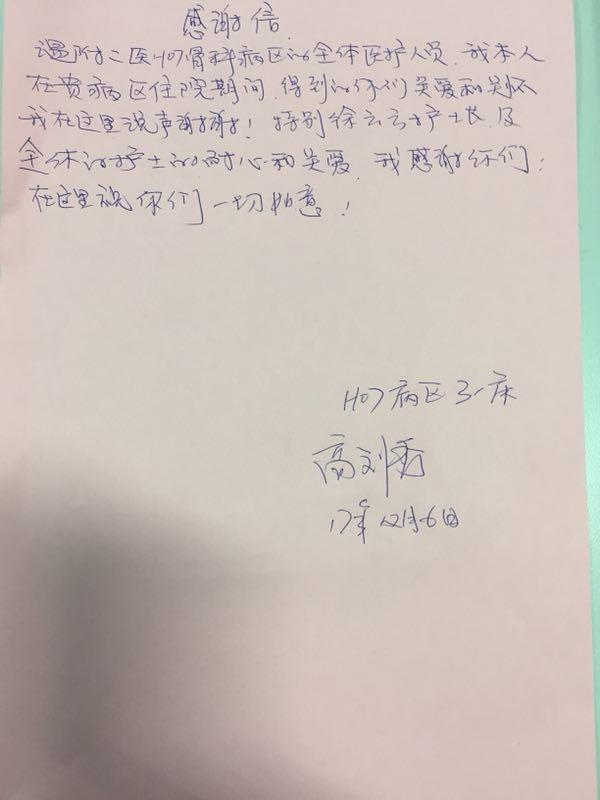 感谢信
温附二医H07骨科病区的全体医护人员.我本人
在贵病区住院期间.得到的你们关爱和关怀
我在这里说声谢谢!特别徐云云护士长及
全体的护士的耐心和关爱.我感谢你们:
在这里祝你们一切如意!
H07病区31床
高刘秀
17年12月6日